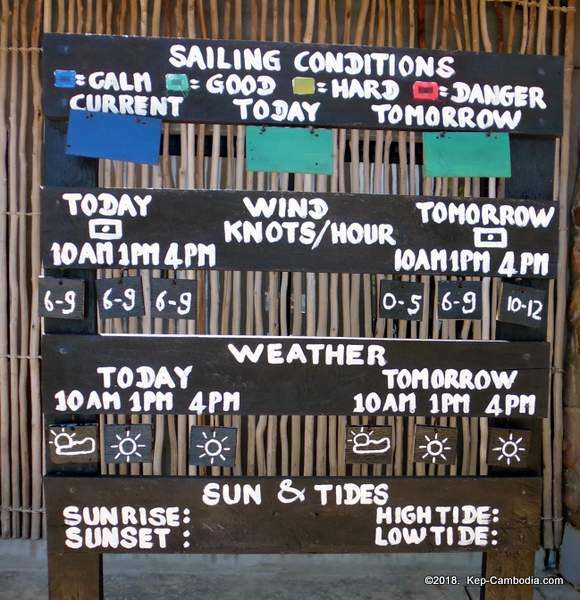 SAILING CONDITIONS
=CALM =GOOD =HARD =DANGER
CURRENT TODAY TOMORROW
TODAY WIND TOMORROW
KNOTS/HOUR
10AM 1PM 4PM 10AM 1PM 4PM
6-9 6-9 6-9 0-5 6-9 10-12
WEATHER
TODAY TOMORROW
10AM 1PM 4PM 10AM 1PM 4PM
SUN & TIDES
SUNRISE: HIGH TIDE:
SUNSET : LOW TIDE:
©2018. Kep-Cambodia.com